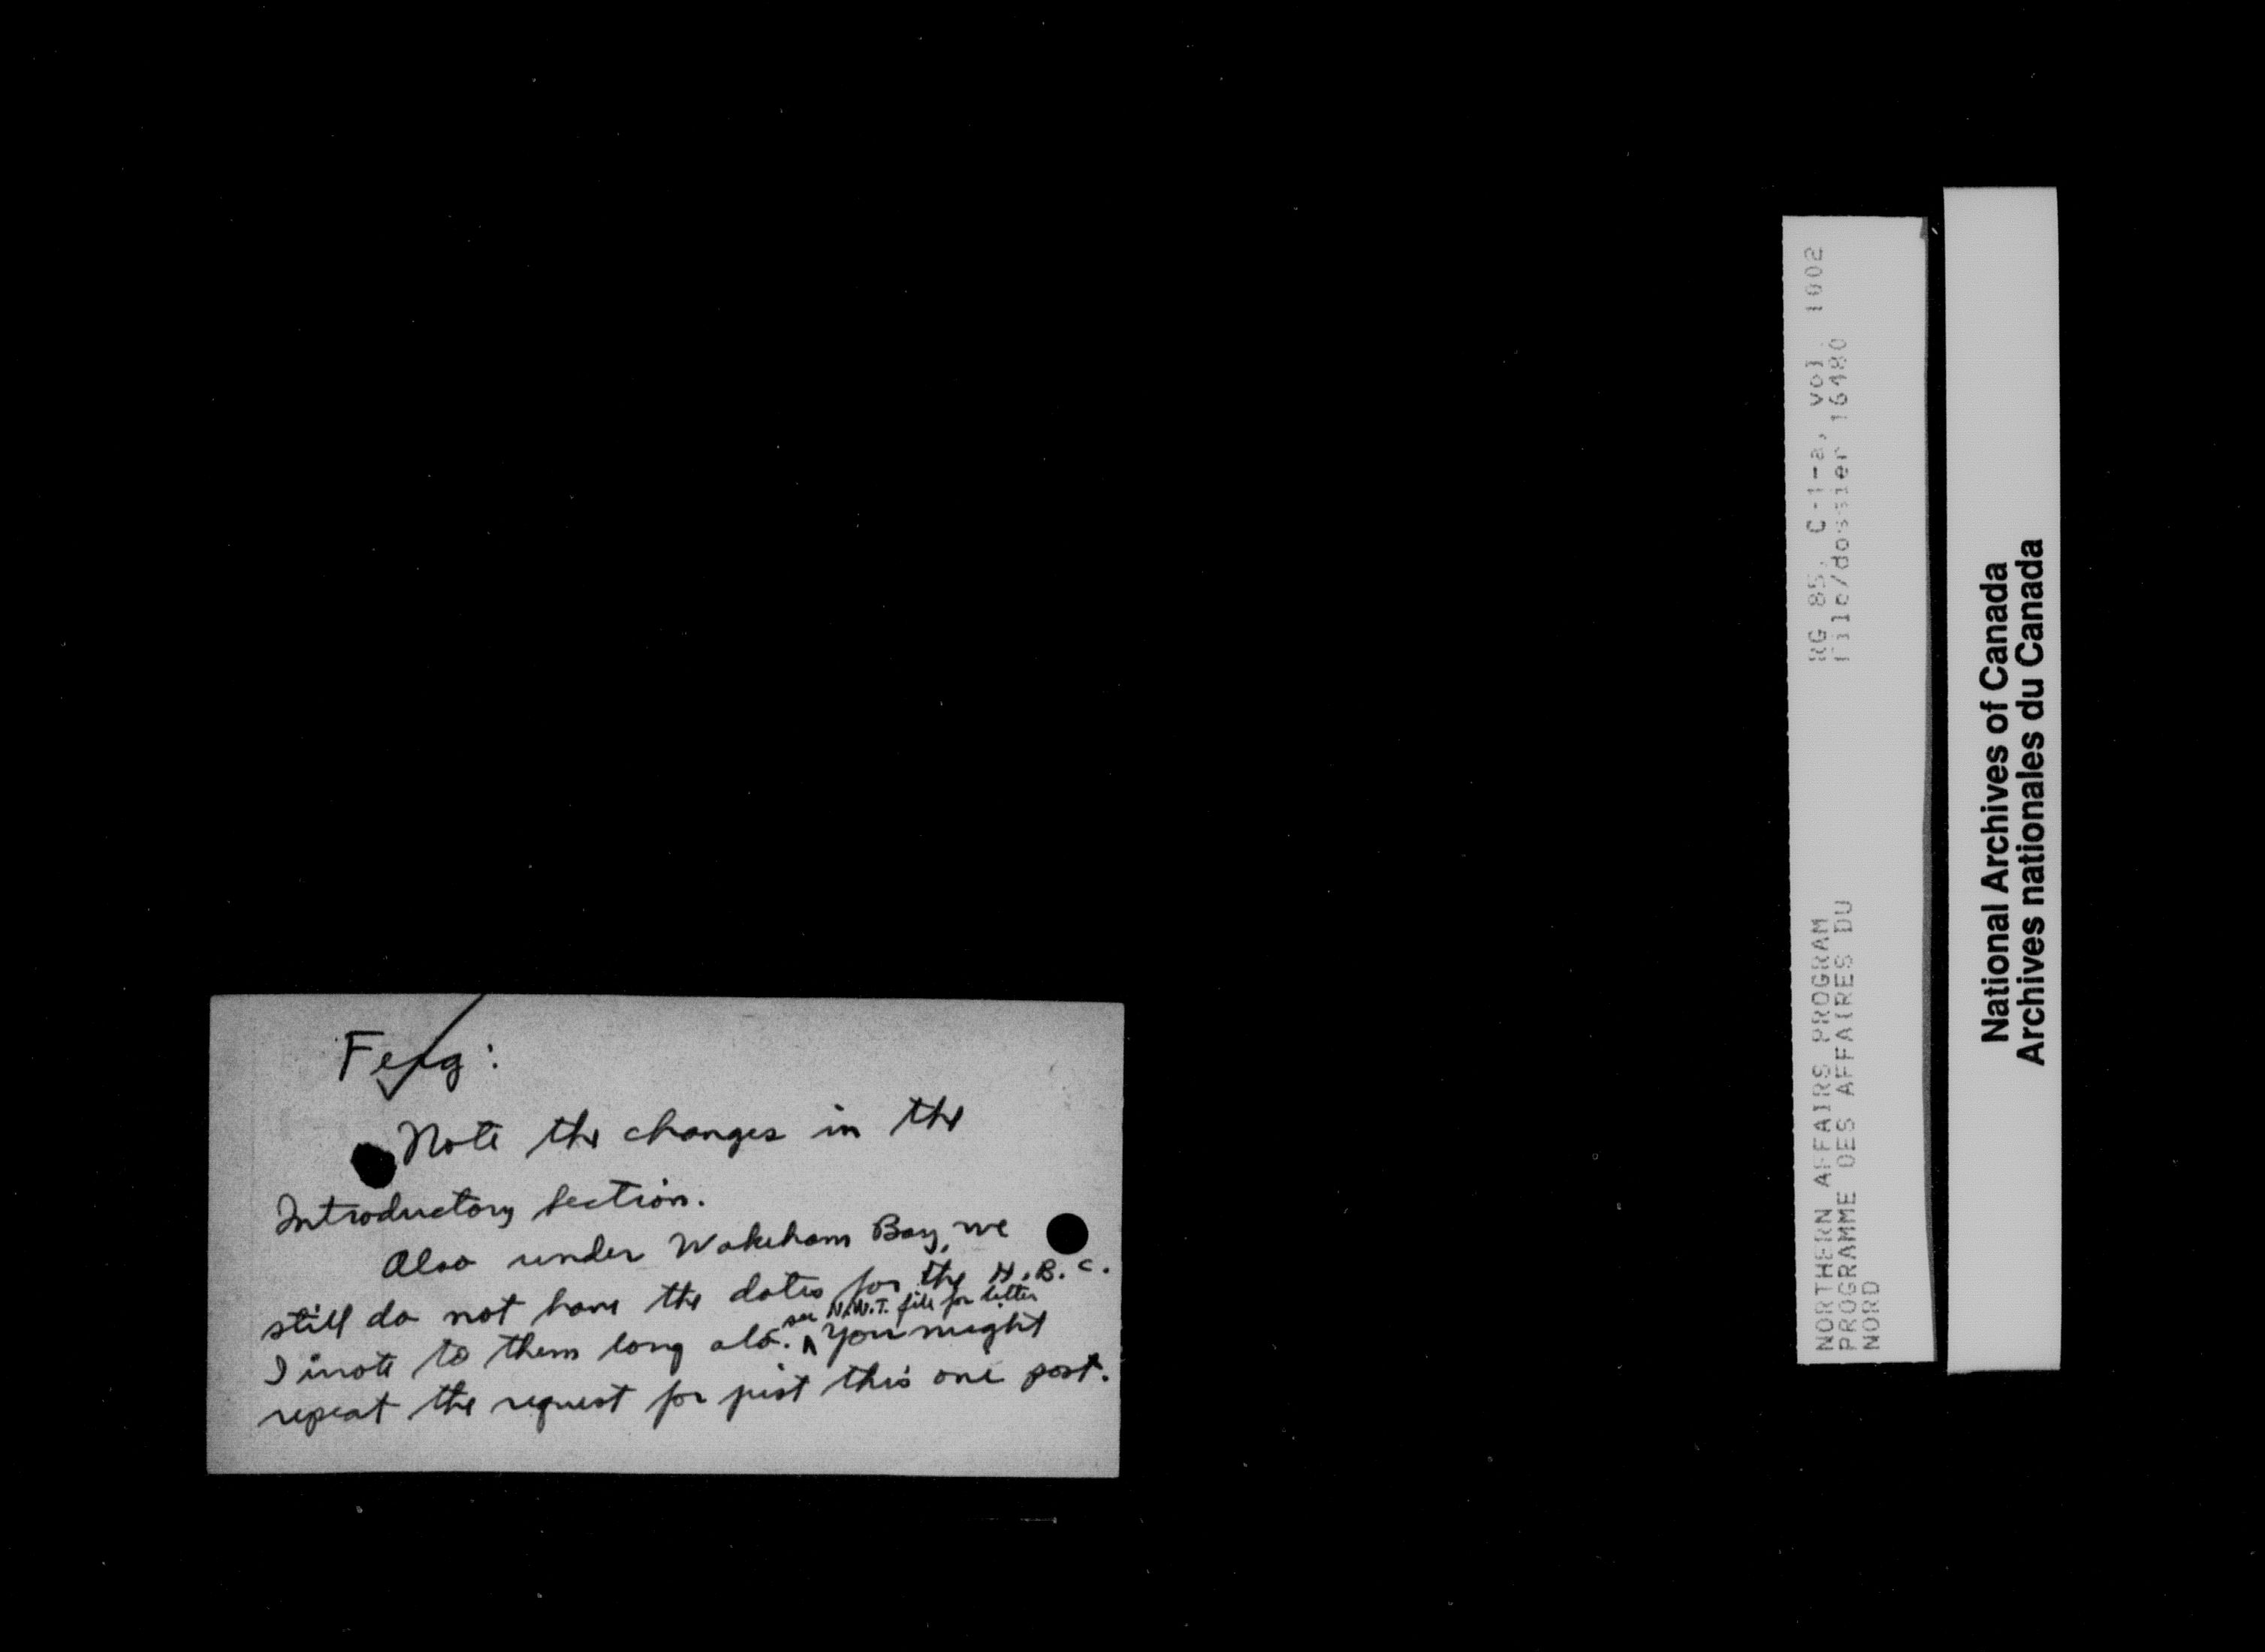 Ferg:
Note the changes in the
Introductory section.
Also under Wakeham Bay, we
still do not have the dates for the H.B.C.
see N.W.T. file for letter
I wrote to them long ago. ^ You might
repeat the request for just this one post.
RG 85, C-1-a, vol. 1002
File/dossier 16480
NORTHERN AFFAIRS PROGRAM
PROGRAMME DES AFFAIRES DU
NORD
National Archives of Canada
Archives nationales du Canada